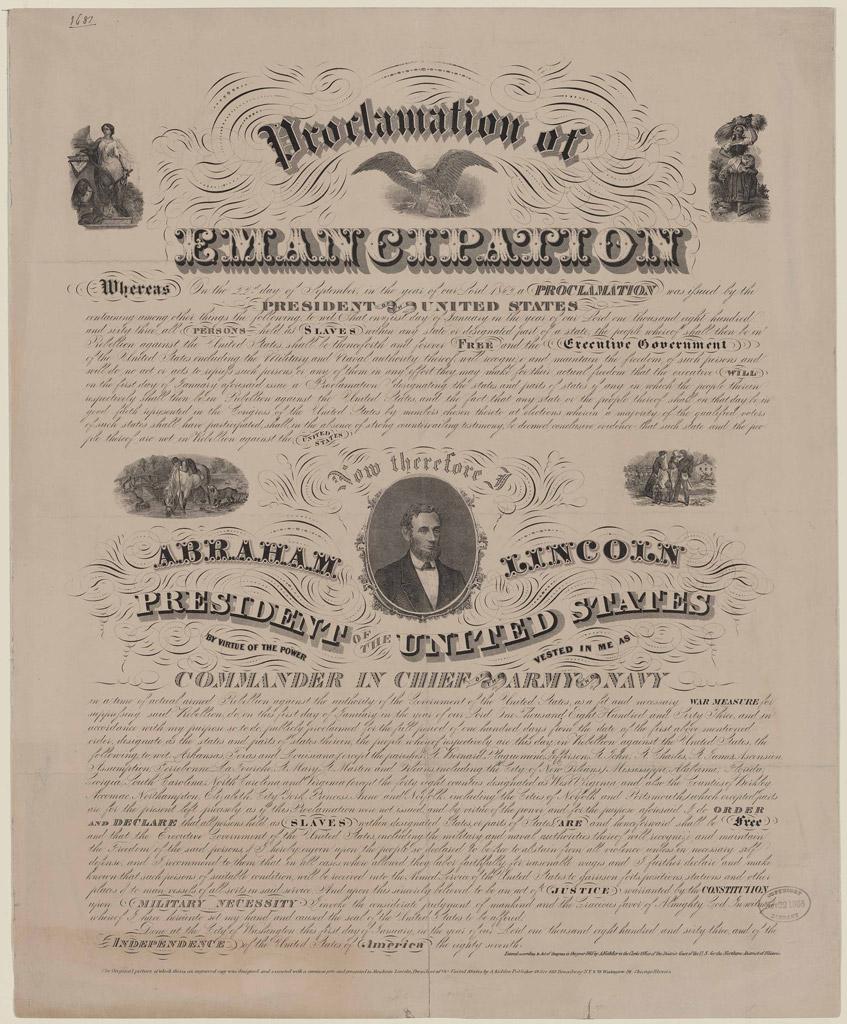 1687
Proclamation of
EMANCIPATION
Whereas On the 22nd day of September, in the year of our Lord 1862 a PROCLAMATION was issued by the
PRESIDENT OF THE UNITED STATES
containing among other things the following to wit: That on first day of January in the year of our Lord one thousand eight hundred
and sixty three, all PERSONS held as SLAVES within any state or designated part of a state, the people whereof shall then be in
Rebellion against the United States shall be thenceforth and forever FREE and the Executive Government
of the United States including the Military and Naval authority thereof will recognize and maintain the freedom of such persons and
will do no act or acts to repress such persons or any of them in any effort they may make for their actual freedom that the executive WILL
on the first day of January aforesaid issue a Proclamation designating the states and parts of states if any in which the people therein
respectively shall then be in Rebellion against the United States, and the fact that any state or the people thereof shall on that day be in
good faith represented in the Congress of the United States by members chosen thereto at elections wherein a majority of the qualified voters
of such states shall have participated, shall in the absence of strong countervailing testimony, be deemed conclusive evidence that such state and the peo-
ple thereof are not in Rebellion against the UNITED STATES
Now therefore I
ABRAHAM LINCOLN
PRESIDENT OF THE UNITED STATES
BY VIRTUE OF THE POWER VESTED IN ME AS
COMMANDER IN CHIEF OF THE ARMY AND NAVY
in a time of actual armed Rebellion against the authority of the Government of the United States, as a fit and necessary WAR MEASURE for
suppressing said Rebellion, do on this first day of January in the year of our Lord One Thousand Eight Hundred and Sixty Three, and in
accordance with my purpose so to do, publicly proclaimed for the full period of one hundred days from the date of the first above mentioned
order, designate as the states and parts of states therein, the people whereof respectively are this day in Rebellion against the United States, the
following, to wit: Arkansas, Texas and Louisiana except the parishes St. Bernard, Plaquemine, Jefferson, St. John, St. Charles, St. James, Ascension,
Assumption, Terrebonne, La Fourche, St. Mary, St. Martin and Orleans, including the City of New Orleans, Mississippi, Alabama, Florida,
Georgia, South Carolina, North Carolina and Virginia except the forty eight counties designated as West Virginia and also the Counties of Berkley,
Accomac, Northampton, Elizabeth City, York, Princess Anne and Norfolk, including the Cities of Norfolk and Portsmouth, which excepted parts
are for the present left precisely as if this Proclamation were not issued, and by virtue of the power and for the purpose aforesaid I do ORDER
AND DECLARE that all persons held as SLAVES within designated States, or parts of States, ARE and henceforward shall be Free
and that the Executive Government of the United States, including the military and naval authorities thereof will recognize and maintain
the Freedom of the said persons & I hereby enjoin upon the people so declared to be free to abstain from all violence unless in necessary self
defense, and I recommend to them that in all cases, when allowed they labor faithfully for reasonable wages and I further declare and make
known that such persons of suitable condition, will be received into the Armed Service of the United States to garrison forts, positions, stations and other
places & to man vessels of all sorts in said service. And upon this sincerely believed to be an act of JUSTICE warranted by the CONSTITUTION
upon MILITARY NECESSITY I invoke the considerate judgment of mankind and the Gracious favor of Almighty God. In witness
whereof I have hereunto set my hand and caused the seal of the United States to be affixed.
Done at the City of Washington this first day of January, in the year of our Lord one thousand eight hundred and sixty three, and of the
INDEPENDENCE of the United States of America the eighty seventh.
COPYRIGHT
LIBRARY
Entered according to Act of Congress in the year 1865 by A Kidder in the Clerks Office of the District Court of the U.S. for the Northern District of Illinois.